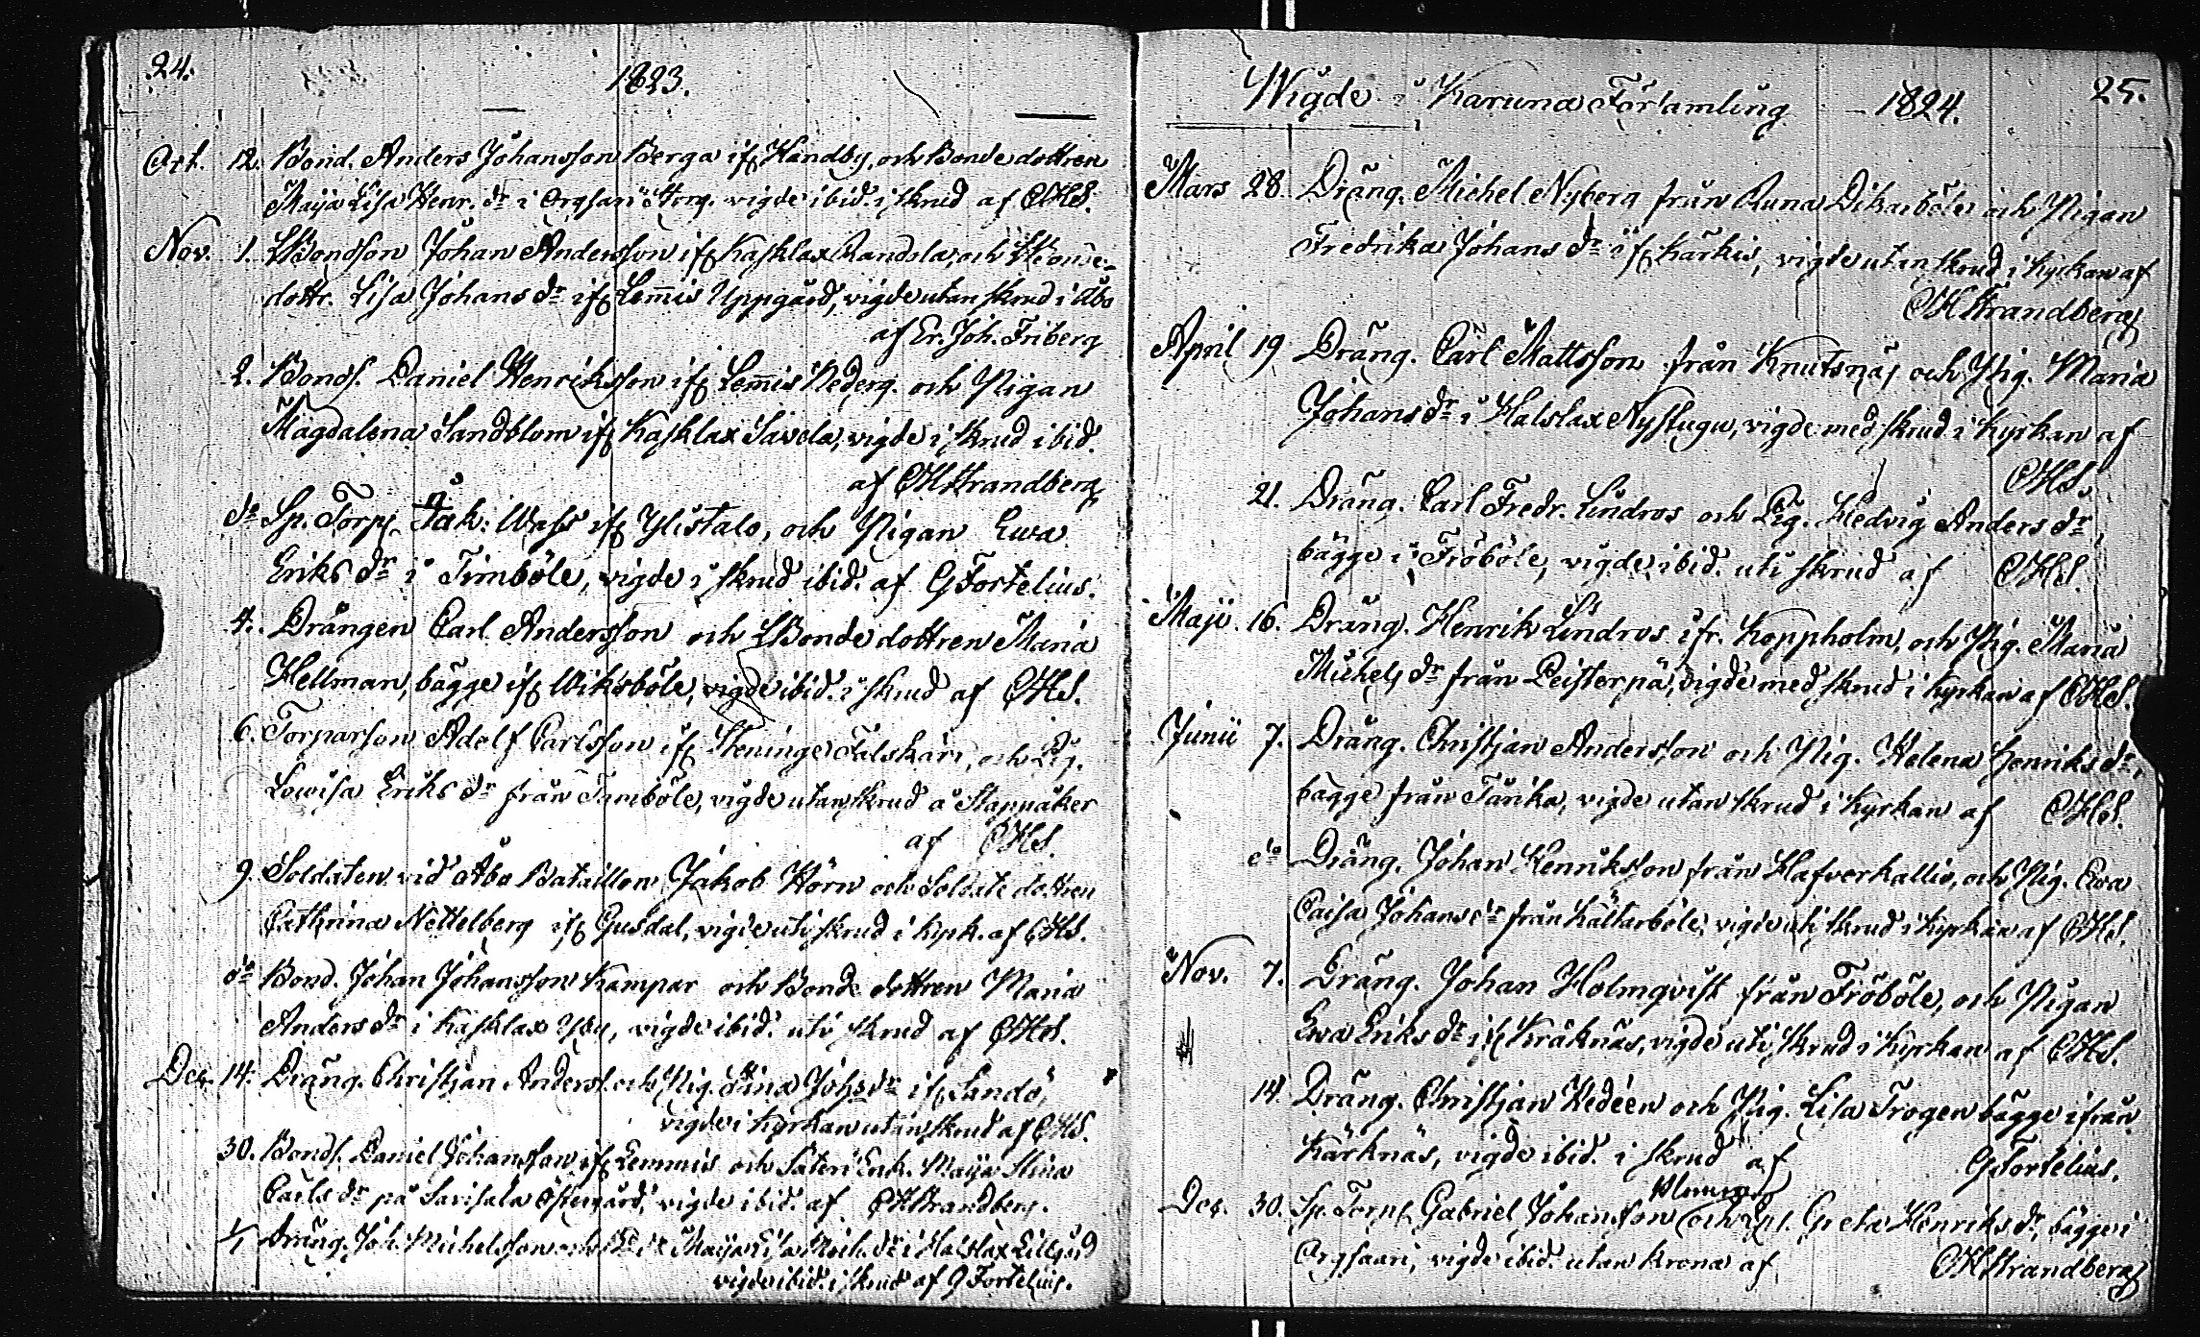 24.
1823.
Oct. 12. Bond. Anders Johansson Berga ifr Handby, och Bonde dottren
Maija Lisa Henr. dr i Orgsari Storg. vigde ibid. i skrud af CHS.
Nov. 1. LBondson Johan Andersson ifr Kasklax Randela, och
dottr. Lisa Johans dr ifr Lem̅is Uppgård, vigde utan skrud i Åbo
af Er. Joh. Friberg
2. Bonds. Daniel Henriksson ifr Lem̅is Nederg. och Pigan
Magdalena Sandblom ifr Kasklax Savela, vigde i skrud ibid.
af CHStrandberg
do Sp. Torp. Isak: Wass ifr Ylistalo, och Pigan Ewa
Eriks dr i Timböle, vigde i skrud ibid. af GFortelius.
4. Drängen Carl Andersson och LBonde dottren Maria
Hellman, bägge ifr Wiksböle, vigde ibid. i skrud af CHS.
6. Torparson Adolf Carlsson ifr Steninge Falskärs, och Pig.
Lowisa Eriks dr från Timböle, vigde utan skrud å Stappåker
af CHS.
9. Soldaten vid Åbo Bataillon Jakob Hörn och Soldate dottren
Cathrina Nettelberg ifr Gusdal, vigde uti skrud i kyrk. af CHS.
do Bond. Johan Johansson Kampar och Bonde dottren Maria
Anders dr i Kasklax, vigde ibid. uti skrud af CHS.
Dec. 14. Dräng. Christjan Anderss. och Pig. Stina Johs dr ifr Sandö,
vigde i Kyrkan utan skrud af CHS.
30. Bonds. Daniel Johansson ifr Lemmis och Säteri Enk. Maija Stina
Carls dr på Savisala Östergård, vigde ibid. af CHStrandberg.
Dräng. Joh. Michelsson och Maija Lisa Mich. dr i Halslax Lillgård
vigde ibid. i skrud af GFortelius.
Wigde i Karuna Församling 1824. 25.
Mars 28. Dräng. Michel Nyberg från Runa Dikarböle och Pigan
Fredrika Johans dr ifr Kärkis, vigde utan skrud i kyrkan af
CHStrandberg
April 19 Dräng. Carl Mattsson från Knutsnäs och Pig. Maria
Johans dr i Halslax Nystugu, vigde med skrud i kyrkan af
CHS.
21. Dräng. Carl Fredr. Lindros och Pig. Hedvig Anders dr,
bägge i Fröböle, vigde ibid. uti skrud af CHS.
Maji. 16. Dräng. Henrik Lindros ifr. Koppholm, och Pig. Maria
Michels dr från Peisterpä, vigde med skrud i kyrkan af CHS.
Junii 7. Dräng. Christjan Andersson och Pig. Helena Henriks dr,
bägge från Tärika, vigde utan skrud i Kyrkan af CHS.
do Dräng. Johan Henriksson från Hafverkallio, och Pig. Ewa
Caisa Johans dr från Kältarböle, vigde uti skrud i Kyrkan af CHS.
Nov. 7. Dräng. Johan Holmqvist från Fröböle, och Pigan
Ewa Eriks dr ifr Kräknäs, vigde uti skrud i Kyrkan af CHS.
14. Dräng. Christjan Hedéen och Pig. Lisa Trogen bägge ifrån
Kärknäs, vigde ibid. i skrud af GFortelius.
Dec. 30. Sp. Torp. Gabriel Johansson och Greta Henriks dr, bägge i
Orgsaari, vigde ibid. utan krona af CHStrandberg